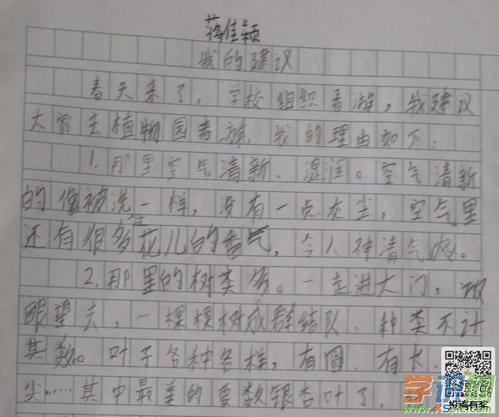 蒋佳颖
我的建议
春天来了，学校组织春游，我建议
大家去植物园春游，我的理由如下：
1.那里空气清新、湿润。空气清新
的像被洗一样，没有一点灰尘，空气里
还有很多花儿的香气，令人神清气爽。
2.那里的树类多。一走进大门，放
眼望去，一棵棵树成群结队，种类不计
其数。叶子各种各样，有圆、有大、
尖……其中最美的要数银杏叶了，